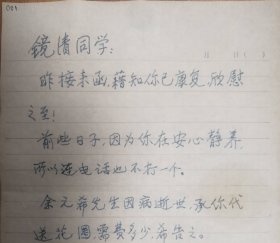 001
镜清同学:
昨接来函,藉知你已康复,欣慰
之至!
前些日子,因为你在安心静养,
所以连电话也不打一个。
余元希先生因病逝世,承你代
送花圈需费多少,希告之。